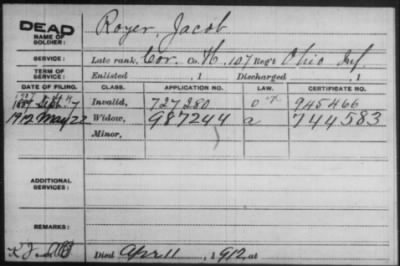 DEAD
NAME OF SOLDIER: Royer, Jacob
SERVICE: Late rank, Cor. Co. H, 107 Reg't Ohio Inf.
TERM OF SERVICE: Enlisted , 1 Discharged , 1
DATE OF FILING. CLASS. APPLICATION NO. LAW. CERTIFICATE NO.
Sept. 7 Invalid, 727280 945466
1912 May 22 Widow, 987244 a 744583
Minor,
ADDITIONAL SERVICES:
REMARKS:
Died Apr 11, 1912, at